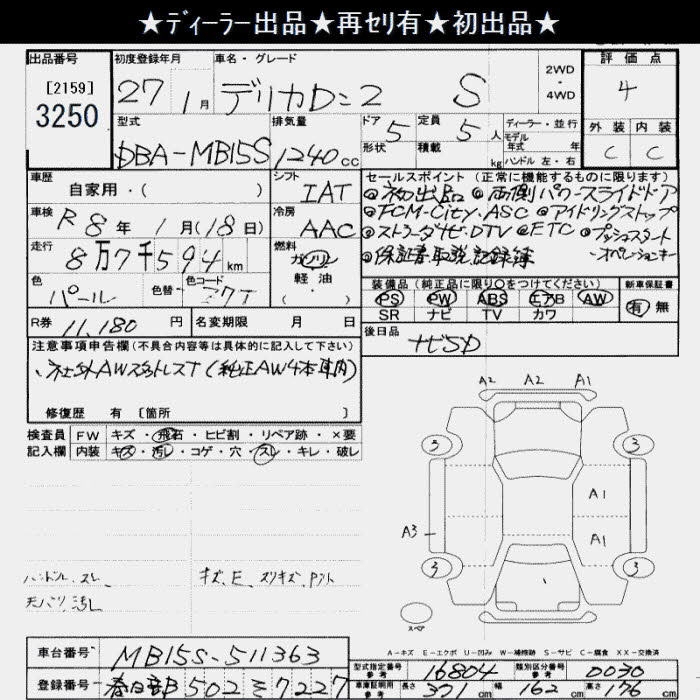 ★ディーラー出品★再セリ有★初出品★
出品番号 初度登録年月 車名・グレード 評価点
[2159] 27 1月 デリカD:2 S 2WD・4WD 4
3250
型式 排気量 ドア 5 定員 5人 ディーラー・並行 外装 内装
DBA-MB15S 1240cc 形状 積載 kg モデル年式 年式 ハンドル 左・右 C C
車歴 自家用・( ) シフト IAT セールスポイント (正常に機能するものに限ります)
◎初出品 ◎両側パワースライドドア
車検 R8年1月(18日) 冷房 AAC ◎FCM-City.ASC ◎アイドリングストップ
走行 8万7千594km 燃料 ガソリン・軽油・ ◎ストラーダナビ.DTV ◎ETC ◎プッシュスタート
◎保証書取説記録簿 オペレーションキー
色 パール 色替 色コード 装備品 (純正品に限り○をつけてください) 新車保証書
PS PW ABS エアB AW 有 無
SR ナビ TV カワ
R券 11,180円 名変期限 月 日 後日品 ナビSD
注意事項申告欄 (不具合内容等は具体的に記入して下さい)
、社外AWスタットレスT (純正AW4本車内)
修復歴 有 [箇所 ]
検査員 FW キズ・飛石・ヒビ割・リペア跡・×要
記入欄 内装 キズ・汚レ・コゲ・穴・スレ・キレ・破レ
A2 A2 A1
3 3
A1
A3 A1
3 3
スペア
ハンドル.スレ、 キズ、E、スリキズ、
天バリ汚レ
A-キズ E-エクボ U-凹み W-補修跡 S-サビ C-腐食 XX-交換済
車台番号 MB15S-511363
型式指定番号 参考 16804 類別区分番号 参考 0030
登録番号 春日部502そ7227
車庫証明用 参考 長さ 371cm 幅 162cm 高さ 176cm